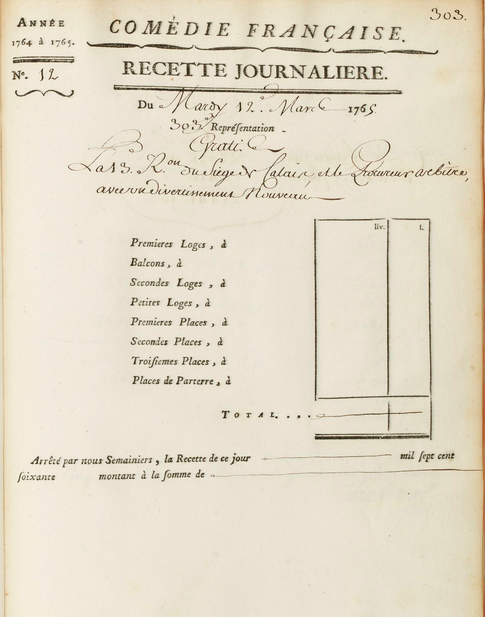 303.
ANNÉE
1764 à 1765.
COMÉDIE FRANÇAISE.
N°. 12
RECETTE JOURNALIERE.
Du Mardy 12e Mars 1765
303e Représentation
Gratis
La 13. R.on du Siège de Calais et le Procureur arbitre,
avec un divertissement Nouveau
liv. ſ.
Premieres Loges, à
Balcons, à
Secondes Loges, à
Petites Loges, à
Premieres Places, à
Secondes Places, à
Troiſiemes Places, à
Places de Parterre, à
TOTAL....
Arrêté par nous Semainiers, la Recette de ce jour mil ſept cent
ſoixante montant à la ſomme de